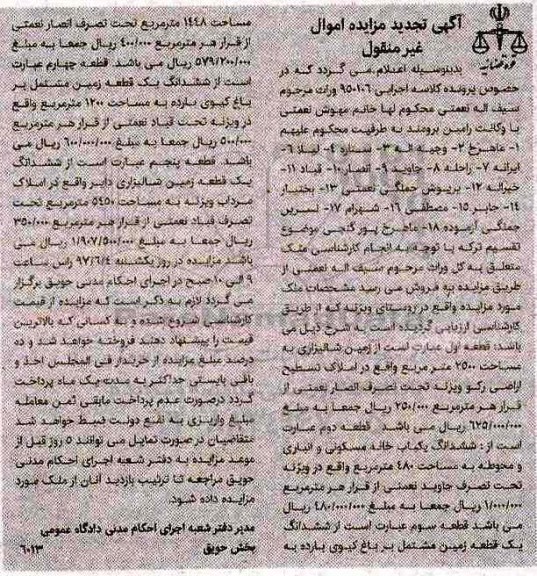 آگهی تجدید مزایده اموال
غیر منقول
بدینوسیله اعلام می گردد که در
خصوص پرونده کلاسه اجرایی ۹۵۰۱۰۶ وراث مرحوم
سیف اله نعمتی محکوم لها خانم مهوش نعمتی
با وکالت رامین برومند به طرفیت محکوم علیهم
۱- ماهرخ ۲- وجیه اله ۳- ستاره ۴- لیلا ۶-
ایرانه ۷- راحله ۸- جاوید ۹- انصار ۱۰- قباد ۱۱-
خیراله ۱۲- پریوش جملگی نعمتی ۱۳- بختیار
۱۴- جابر ۱۵- مصطفی ۱۶- شهرام ۱۷- نسرین
جملگی آزموده ۱۸- ماهرخ پور گنجی موضوع
تقسیم ترکه با توجه به انجام کارشناسی ملک
متعلق به کل وراث مرحوم سیف اله نعمتی از
طریق مزایده به فروش می رسد مشخصات ملک
مورد مزایده واقع در روستای ویزنه که از طریق
کارشناسی ارزیابی گردیده است به شرح ذیل می
باشد: قطعه اول عبارت است از زمین شالیزاری به
مساحت ۲۵۰۰ متر مربع واقع در املاک تسطیح
اراضی رکو ویزنه تحت تصرف انصار نعمتی از
قرار هر مترمربع ۲۵۰/۰۰۰ ریال جمعا به مبلغ
۶۲۵/۰۰۰/۰۰۰ ریال می باشد. قطعه دوم عبارت
است از : ششدانگ یکباب خانه مسکونی و انباری
و محوطه به مساحت ۴۸۰ مترمربع واقع در ویزنه
تحت تصرف جاوید نعمتی از قرار هر مترمربع
۱/۰۰۰/۰۰۰ ریال جمعا به مبلغ ۴۸۰/۰۰۰/۰۰۰ ریال
می باشد قطعه سوم عبارت است از ششدانگ
یک قطعه زمین مشتمل بر باغ کیوی بارده به
مساحت ۱۴۴۸ مترمربع تحت تصرف انصار نعمتی
از قرار هر مترمربع ۴۰۰/۰۰۰ ریال جمعا به مبلغ
۵۷۹/۲۰۰/۰۰۰ ریال می باشد. قطعه چهارم عبارت
است از ششدانگ یک قطعه زمین مشتمل بر
باغ کیوی بارده به مساحت ۱۲۰۰ مترمربع واقع
در ویزنه تحت قباد نعمتی از قرار هر مترمربع
۵۰۰/۰۰۰ ریال جمعا به مبلغ ۶۰۰/۰۰۰/۰۰۰ ریال می
باشد. قطعه پنجم عبارت است از ششدانگ
یک قطعه زمین شالیزاری دایر واقع در املاک
مرداب ویزنه به مساحت ۵۴۵۰ مترمربع تحت
تصرف قباد نعمتی از قرار هر مترمربع ۳۵۰/۰۰۰
ریال جمعا به مبلغ ۱/۹۰۷/۵۰۰/۰۰۰ ریال می
باشد مزایده در روز یکشنبه ۹۷/۶/۴ راس ساعت
۹ الی ۱۰ صبح در اجرای احکام مدنی حویق برگزار
می گردد لازم به ذکر است که مزایده از قیمت
کارشناسی شروع شده و به کسانی که بالاترین
قیمت را پیشنهاد دهند فروخته خواهد شد و ده
درصد مبلغ مزایده از خریدار فی المجلس اخذ و
باقی بایستی حداکثر به مدت یک ماه پرداخت
گردد درصورت عدم پرداخت مابقی ثمن معامله
مبلغ واریزی به نفع دولت ضبط خواهد شد
متقاضیان در صورت تمایل می توانند ۵ روز قبل از
موعد مزایده به دفتر شعبه اجرای احکام مدنی
حویق مراجعه تا ترتیب بازدید آنان از ملک مورد
مزایده داده شود.
مدیر دفتر شعبه اجرای احکام مدنی دادگاه عمومی
بخش حویق
۶۰۱۳